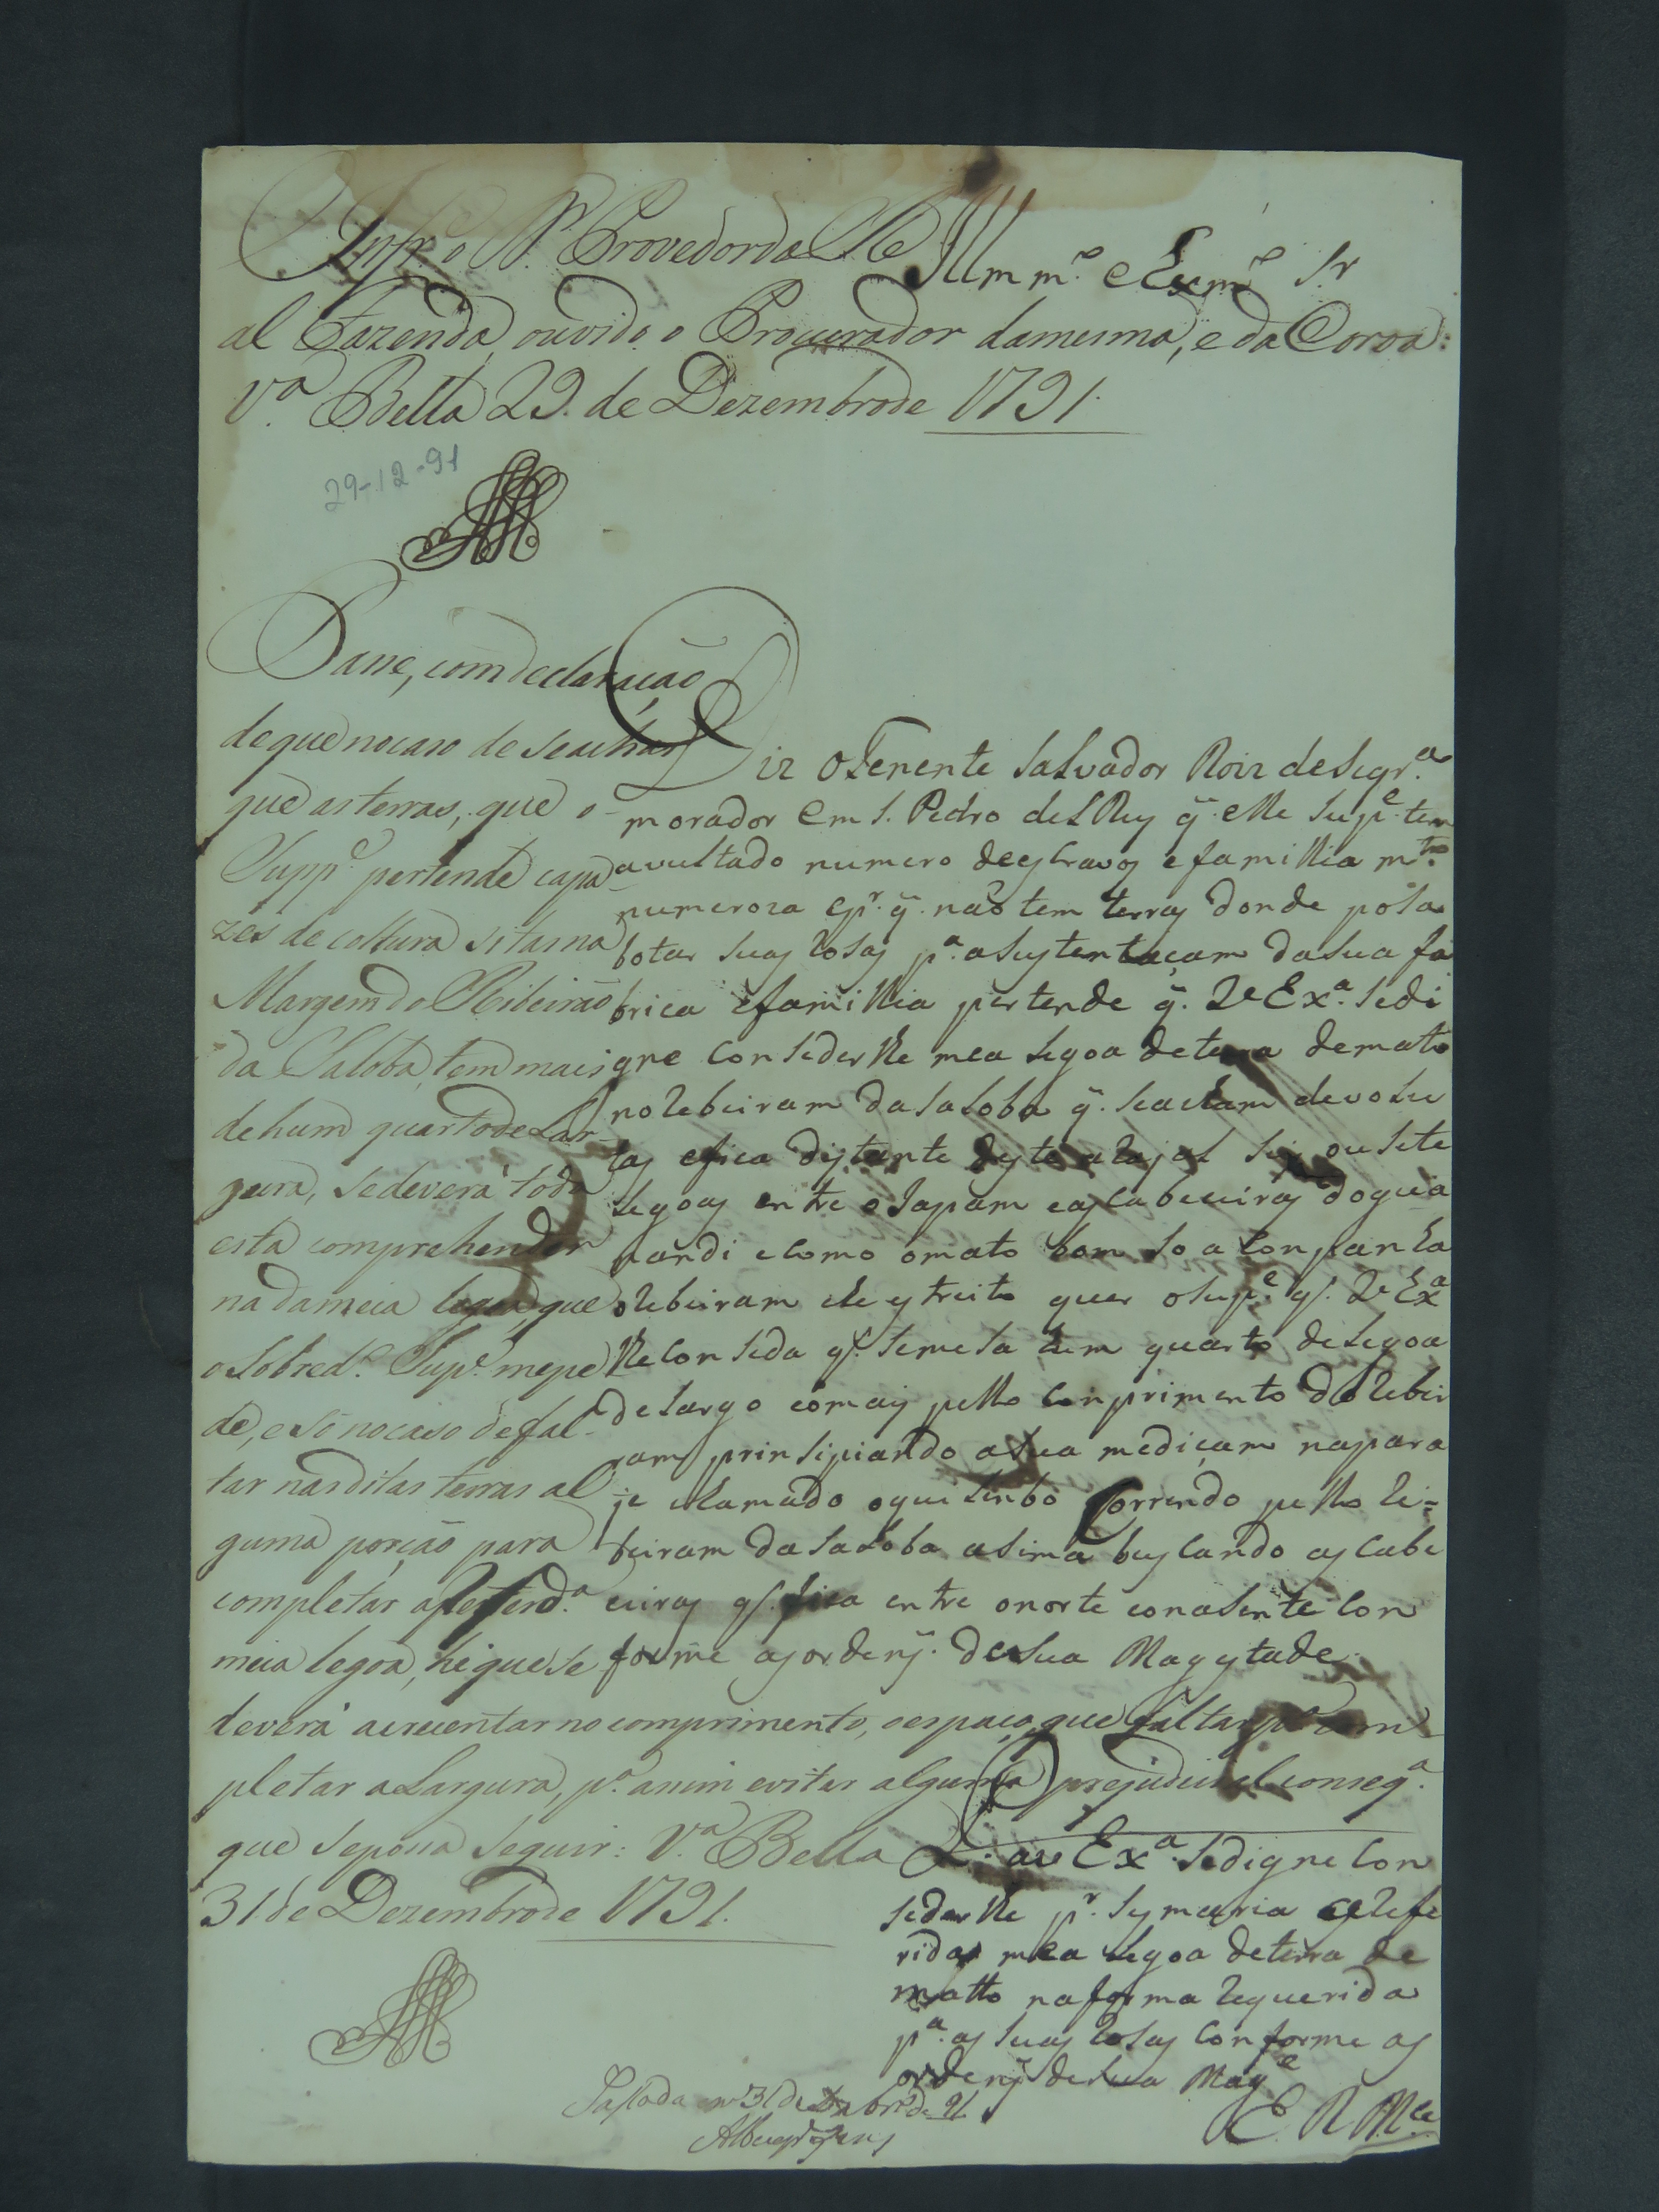 Infr.e o D.r Provedor da Re
al Fazenda, ouvido o Procurador da mesma, e da Coroa:
V.a Bella 29. de Dezembro de 1791.
29-12-91
Illm.mo e Exm.o Sr
Passe, com declaração
de que no caso de se achar
que as terras, que o
Supp.e pertende capa
zes de cultura sitas na
Margem do Ribeirão
da Saloba, tem mais
de hum quarto de Lar-
gura, se deverá toda
esta comprehender
na da meia legoa, que
o sobred.o Sup.e me pe
de, e só no caso de fal-
tar nas ditas terras al
guma porção para
completar a pertend.a
meia legoa, he que se
deverá acrecentar no comprimento, o espaço, que faltar p.a com
pletar a Largura, p.a assim evitar alguma prejudicial conseq.a
que se possa seguir: V.a Bella
31 de Dezembro de 1791.
Diz o Tenente Salvador Roiz de Siqr.a
morador em S. Pedro del Rey q̃. elle Sup.e tem
avultado numero de escravos e familhia m.to
numeroza e p.r q̃. não tem terras donde posa
botar suas rosas p.a a sustentaçam da sua fa
brica e familhia pertende q̃. V.e Ex.a se di
gne consederlhe mea legoa de terra de mato
no rebeiram da saloba q̃. se acham devolu
tas e fica distante deste arajal seis ou sete
legoas entre o Sapam e as cabeceiras do guia
randi e como o mato bom so aconpanha
o rebeiram e he estreito quer o sup.e q̃. V.e Ex.a
lhe conseda q̃. se mesa hum quarto de legoa
de largo e o mais pello conprimento do rebei
ram prinsipiando a sua mediçam na para
je chamado o quilonbo correndo pello re=
beiram da saloba asima buscando as cabe
ceiras q̃. fica entre o norte e o nasente con
forme as ordens. de sua Magestade
P. a V.e Ex.a se digne con
sederlhe p.r sysmaria a refe
rida mea legoa de terra de
matto na forma requerida
p.a as suas rosas conforme as
ordens de sua Mag.e
E. R. M.ce
Passada em 31 de Dezbr.o de 91